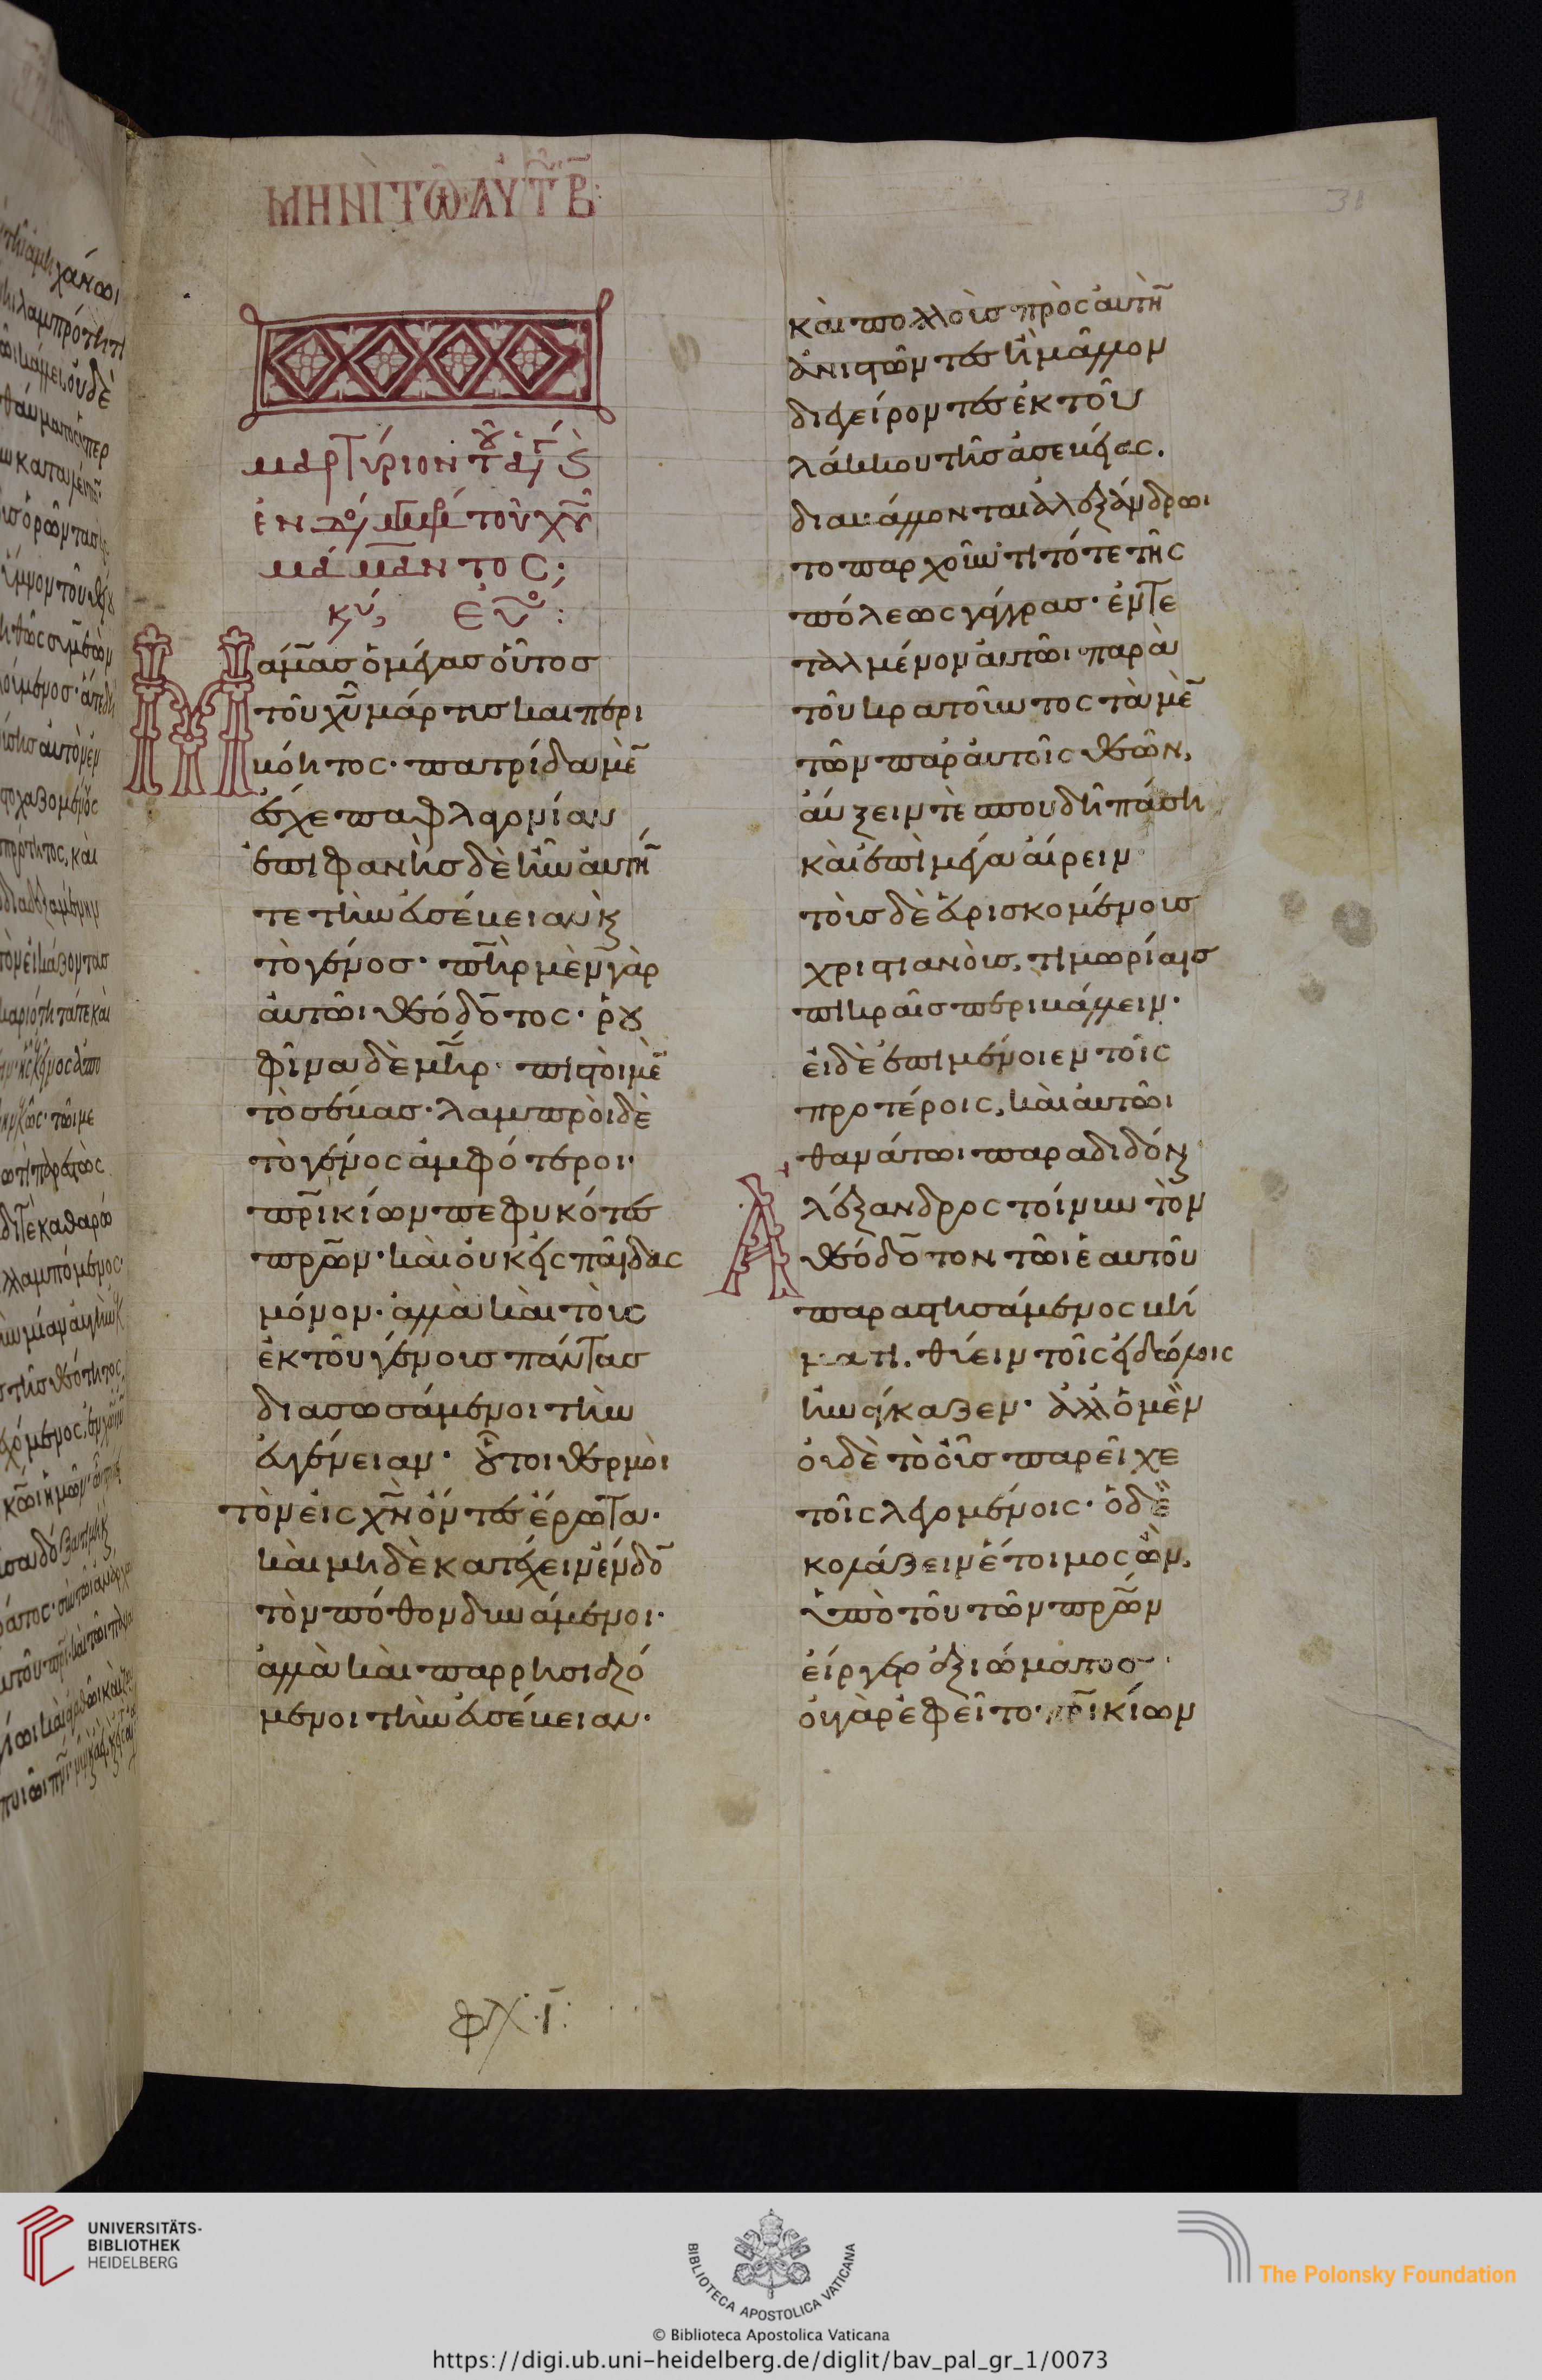 ΜΗΝῚ ΤΩ ΑΥΤ Β:
31
μαρτύριον τοῦ ἁγί καὶ
ἐνδόξ τοῦ χυ
μάμαντος;
κύ, εὐ:
Μάμας ὁ μέγας οὗτος
τοῦ χυ μάρτυς καὶ περι
βόητος· πατρίδα μὲ
ἔσχε παφλαγονίαν
ἐπιφανὴς δὲ ἦν αὐτῆ
τε τὴν εὐσέβειαν κ
τὸ γένος· πηρ μὲν γὰρ
αὐτῶι θεόδοτος· ῥου
φῖνα δὲ μηρ· πιστοὶ μὲ
τὸ σέβας· λαμπροὶ δὲ
τὸ γένος ἀμφότεροι·
πρικίων πεφυκότες
πρων· καὶ οὐκ εἰς παῖδας
μόνον· ἀλλὰ καὶ τοὺς
ἐκ τοῦ γένους πάντας
διασωσάμενοι τὴν
εὐγένειαν· οὗτοι θερμοὶ
τὸν εἰς χν ὄντες ἔρωτα·
καὶ μηδὲ κατέχειν ἔνδο
τὸν πόθον δυνάμενοι·
ἀλλὰ καὶ παρρησιαζό
μενοι τὴν εὐσέβειαν·
καὶ πολλοὺς πρὸς αὐτὴ
ἀνιστῶντες ἢ μᾶλλον
διεγείροντες ἐκ τοῦ
λάκκου τῆς ἀσεβείας.
διαβάλλονται ἀλεξάνδρωι
τὸ παρχοῦντι τότε τῆς
πόλεως γάγγρας· ἐντε
ταλμένον αὐτῶι παρὰ
τοῦ κρατοῦντος τὰ μὲ
τῶν παρ αὐτοῖς θεῶν,
αὔξειν τὲ σπουδῆ πάση
καὶ ἐπὶ μέγα αἴρειν
τοὺς δὲ εὑρισκομένους
χριστιανοὺς, τιμωρίαις
πικραῖς περιβάλλειν·
εἰ δὲ ἐπιμένοιεν τοῖς
προτέροις, καὶ αὐτῶι
θανάτωι παραδιδόναι
Ἀλέξανδρος τοίνυν τὸν
θεόδοτον τῶι ἑαυτοῦ
παραστησάμενος βή
ματι. θύειν τοῖς εἰδώλοις
ἠνάγκαζεν· ἀλλ ὁ μὲν
οὐδὲ τὸ οὖς παρεῖχε
τοῖς λεγομένοις· ὁ δὲ
κολάζειν ἕτοιμος ὢν,
ὑπὸ τοῦ τῶν πρων
εἴργετο ἀξιώματος·
οὐ γὰρ ἐφεῖτο πρικίων
φχ·ι:
UNIVERSITÄTS-
BIBLIOTHEK
HEIDELBERG
BIBLIOTECA APOSTOLICA VATICANA
The Polonsky Foundation
© Biblioteca Apostolica Vaticana
https://digi.ub.uni-heidelberg.de/diglit/bav_pal_gr_1/0073